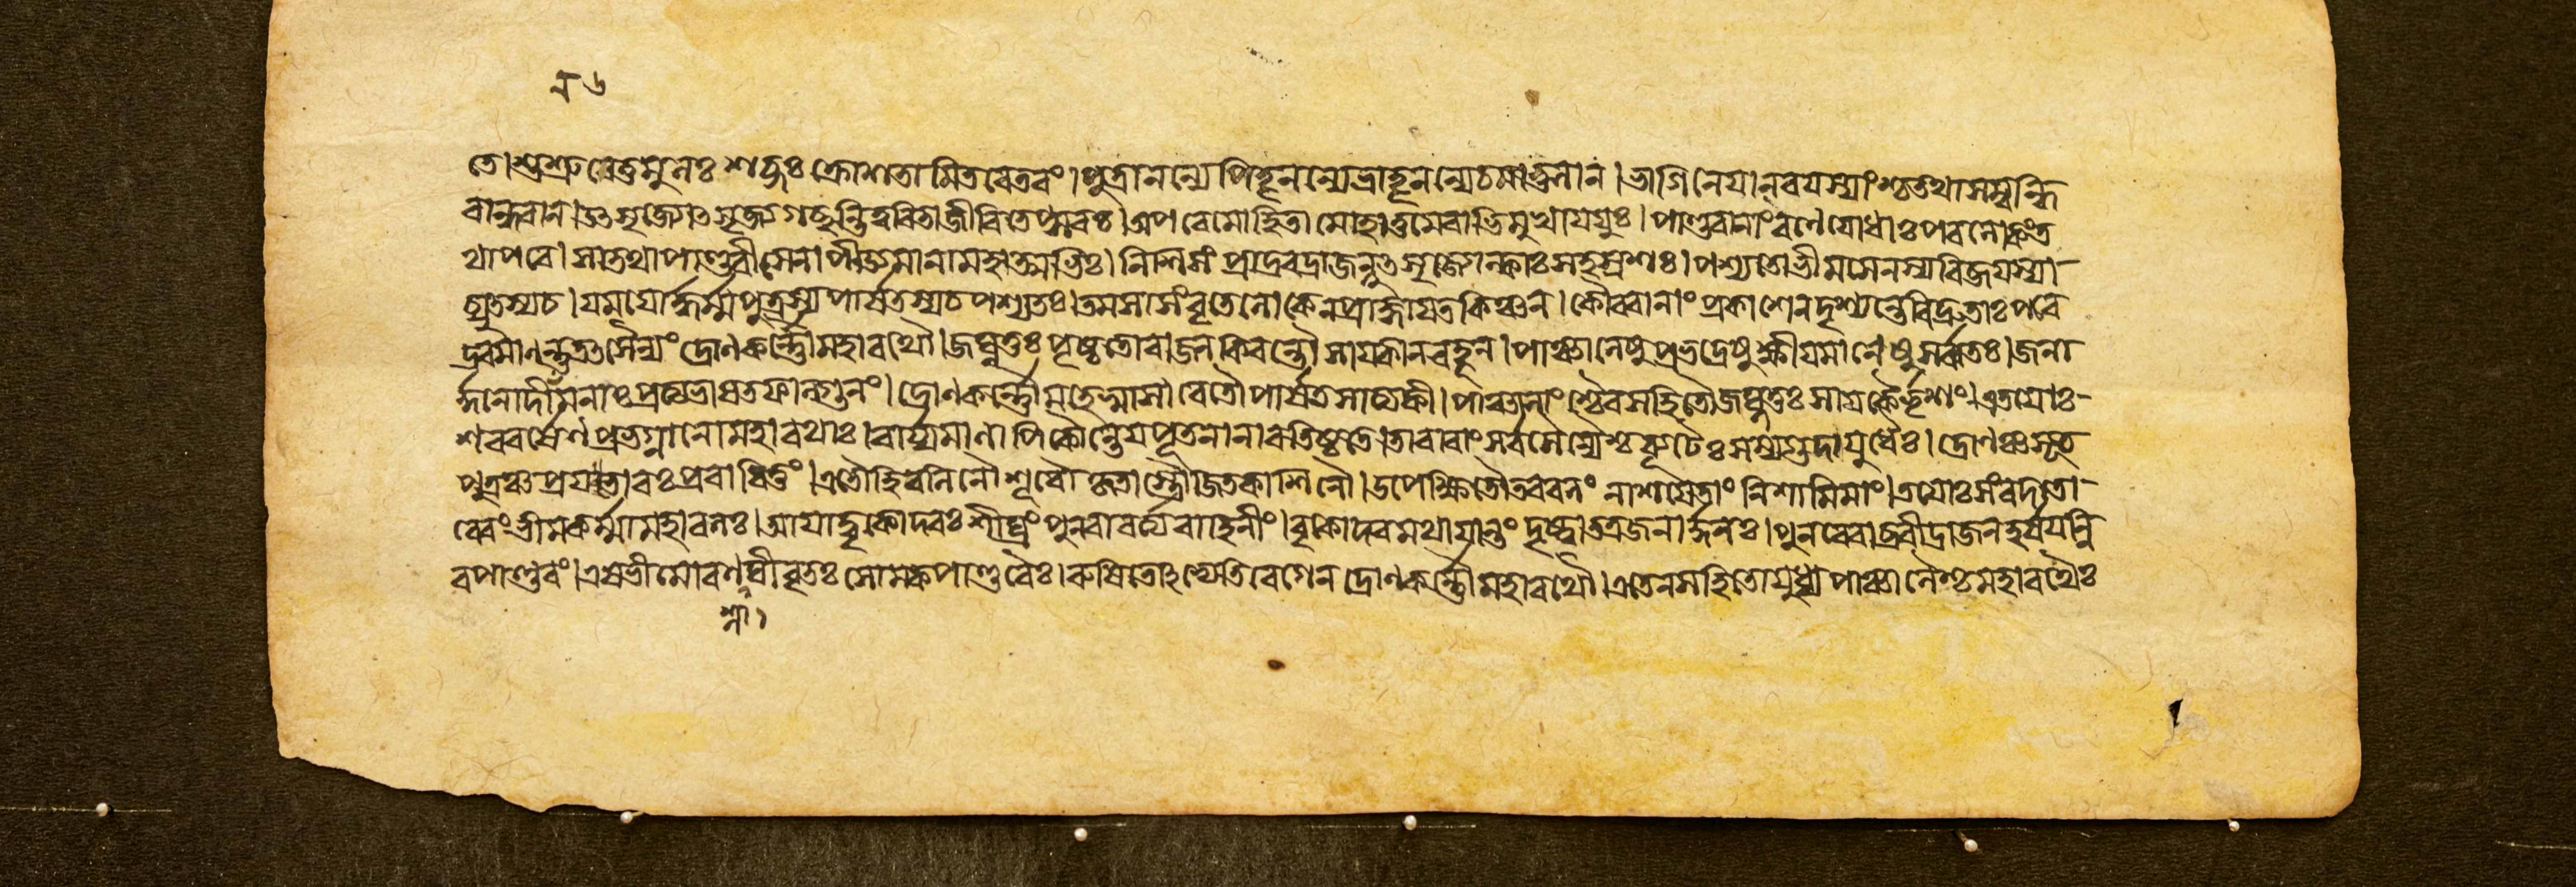 তে।শুশ্রুৱেতুমুলঃশব্দঃক্রোশতামিতৰেতৰং।পুত্রানন্যেপিতৄনন্যেভ্রাতৄনন্যেচমাতুলান।ভাগিনেয়ান্ৱয়স্যাংশ্চতথাসম্বন্ধি
ৱান্ধৱান।উৎসৃজ্যোৎসৃজ্যগচ্ছন্তিত্বৰিতাজীৱিতেপ্সৱঃ।অপৰেমোহিতামোহাত্তমেৱাভিমুখাযযুঃ।পাণ্ডৱানাংৰণেযোধাঃপৰলোকংত
থাপৰে।সাতথাপাণ্ডৱীসেনাপীড্যমানামহাত্মভিঃ।নিশিসংপ্রাদ্রৱদ্রাজন্নুৎসৃজ্যোল্কাঃসহস্রশঃ।পশ্যতোভীমসেনস্যৱিজয়স্যা-
চ্যুতস্যচ।যময়োর্দ্ধর্ম্মপুত্রস্যপার্ষতস্যচপশ্যতঃ।তমসাসংৱৃতেলোকেনপ্রাজ্ঞায়তকিঞ্চন।কৌৰৱানাংপ্রকাশেনদৃশ্যন্তেৱিদ্রুতাঃপৰে
দ্রৱমাণন্তুতৎসৈন্যংদ্রোণকর্ণৌমহাৰথৌ।জঘ্নতুঃপৃষ্ঠতোৰাজন্কিৰন্তৌসায়কানৱহূন।পাঞ্চালেষুপ্রভগ্নেষুক্ষীয়মানেষুসর্ৱতঃ।জনা
র্দ্দনোদীনমনাঃপ্রত্যভাষতফাল্গুনং।দ্রোণকর্ণৌমহেষ্বাসাৱেতৌপার্ষতসাত্যকী।পাঞ্চালাংশ্চৈৱসহিতৌজঘ্নতুঃসায়কৈর্ভৃশং।এতয়োঃ-
শৰৱর্ষেণপ্রভগ্নানোমহাৰথাঃ।ৱার্য্যমাণাপিকৌন্তেয়পৃতনানাৱতিষ্ঠতে।তাৱাৱাংসর্ৱসৈন্যৈশ্চৱ্যূঢৈঃসম্যগুদায়ুধৈঃ।দ্রোণঞ্চসূত
পুত্রঞ্চপ্রযতাৱঃপ্রৱাধিতুং।এতৌহিৱলিনৌশূৰৌকৃতাস্ত্রৌজিতকাশিনৌ।উপেক্ষিতৌতৱৱলংনাশয়েতাংনিশামিমাং।তয়োঃসংৱদতো-
ৰেৱংভীমকর্ম্মামহাৱলঃ।আয়াদ্বৃকোদৰঃশীঘ্রংপুনৰাৱর্ত্যৱাহিনীং।ৱৃকোদৰমথায়ান্তংদৃষ্ট্বাতত্রজনার্দ্দনঃ।পুনৰেৱাব্রৱীদ্রাজনহর্ষয়ন্নি
ৱপাণ্ডৱং।এষভীমোৰণশ্লাঘীৱৃতঃসোমকপাণ্ডৱৈঃ।ৰুষিতোঽভ্যেতিৱেগেনদ্রোণকর্ণৌমহাৰথৌ।এতেনসহিতোযুধ্যপাঞ্চালৈশ্চমহাৰথৈঃ
শ্লা।